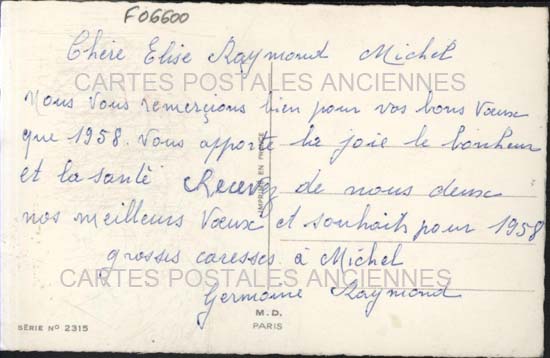 F06600
Chère Elise Raymond Michel
CARTES POSTALES ANCIENNES
Nous Vous remerçions bien pour vos bons Vœux
que 1958. Vous apporte la joie le bonheur
et la santé Recevez de nous deux
nos meilleurs Vœux et souhaits pour 1958
grosses caresses à Michel
CARTES POSTALES ANCIENNES
Germaine Raymond
IMPRIMÉ EN FRANCE
M.D.
PARIS
SÉRIE Nº 2315